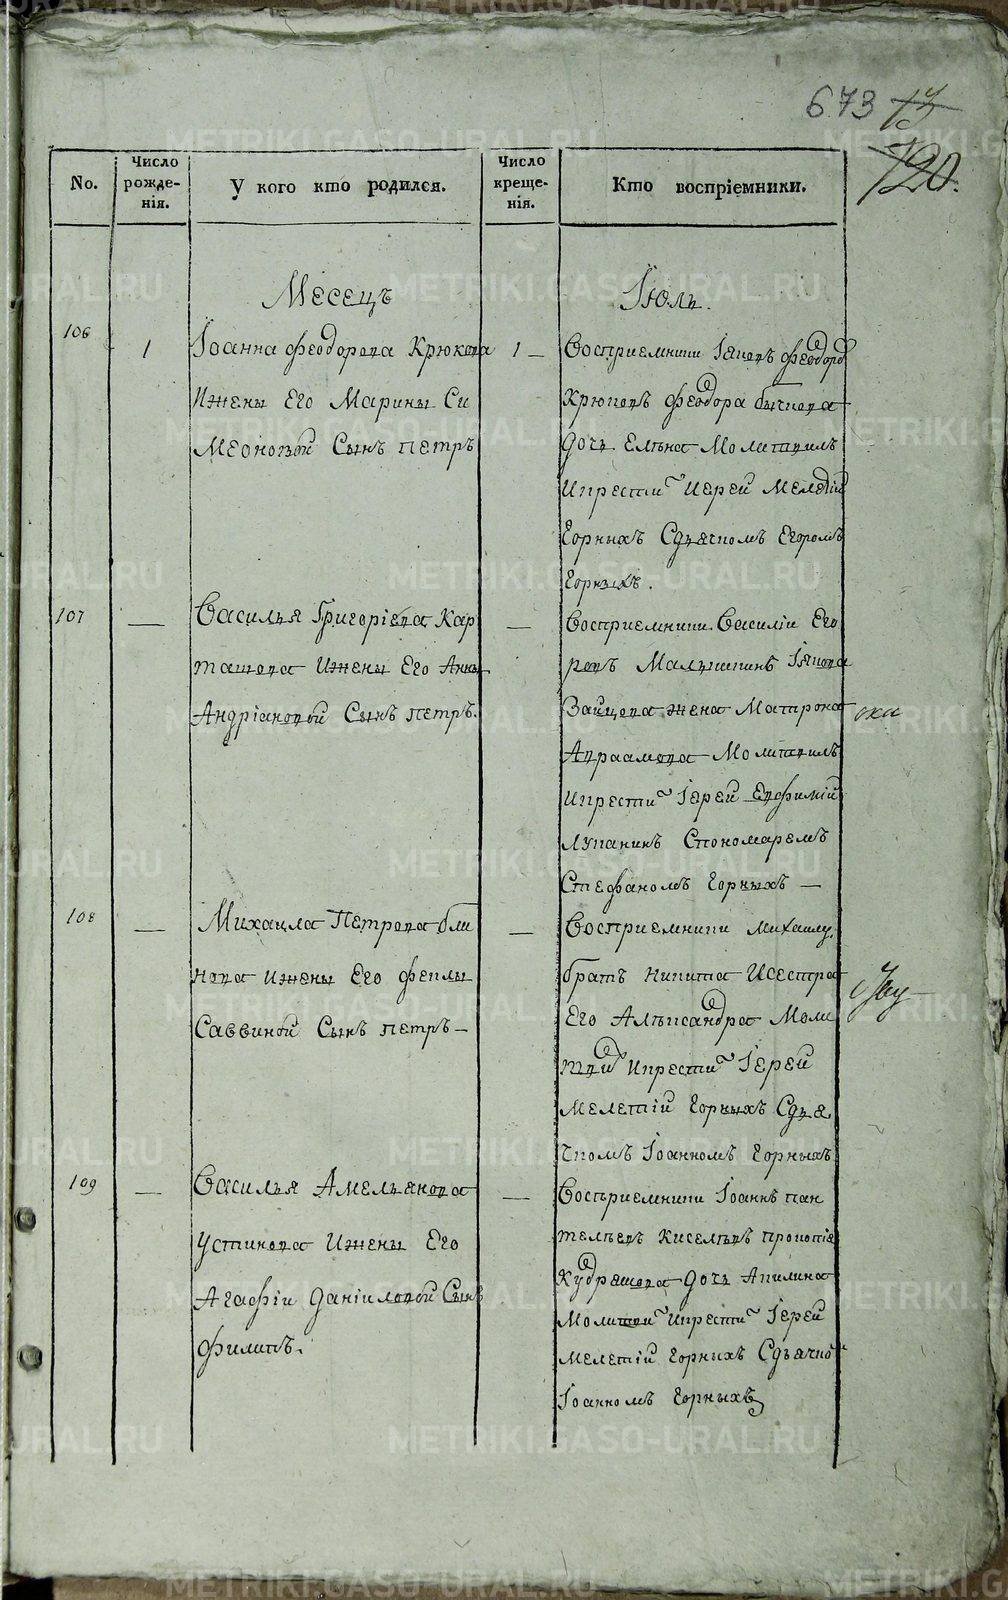 673
120.
No.
Число рожденія.
У кого кто родился.
Число крещенія.
Кто воспріемники.
Месецъ
Іюль.
106
1
Іоанна Феодорова Крюкова
Ижены Его Марины Си
Меоновой Сынъ Петръ
1 —
Восприемники Іяковъ Феодоров
Крюковъ Феодора бычкова
дочь Елена Молитвилъ
Икрести Иерей Мелетій
Горныхъ Сдьячкомъ Егоромъ
Горныхъ.
107
—
Василья Григоріева Кар
ташова Ижены Его Анны
Андріановой Сынъ Петръ.
—
Восприемники Василіи Его
ровъ Малышкинъ Іякова
Зайцова жена Матрона
Авраамова Молитвилъ
Икрести Іерей Евфимій
Лупанинъ Спономаремъ
Стефаномъ Горныхъ —
108
—
Михаила Петрова бли
нова Ижены Его Феклы
Саввиной Сынъ Петръ —
—
Восприемники Михаилу
братъ Никита Исестра
Его Алѣксандра Моли
твои Икрести Іерей
Мелетій Горныхъ Сдья
чкомъ Іоанномъ Горныхъ
109
—
Василья Амельянова
Устинова Ижены Его
Агафіи Даніиловой Сынъ
Филипъ.
—
Восприемники Іоаннъ пан
телѣевъ Киселѣвъ прокопія
Кудряшова дочь Акилина
Молитвои Икрести Іерей
Мелетій Горныхъ Сдьячко
Іоанномъ Горныхъ
METRIKI.GASO-URAL.RU